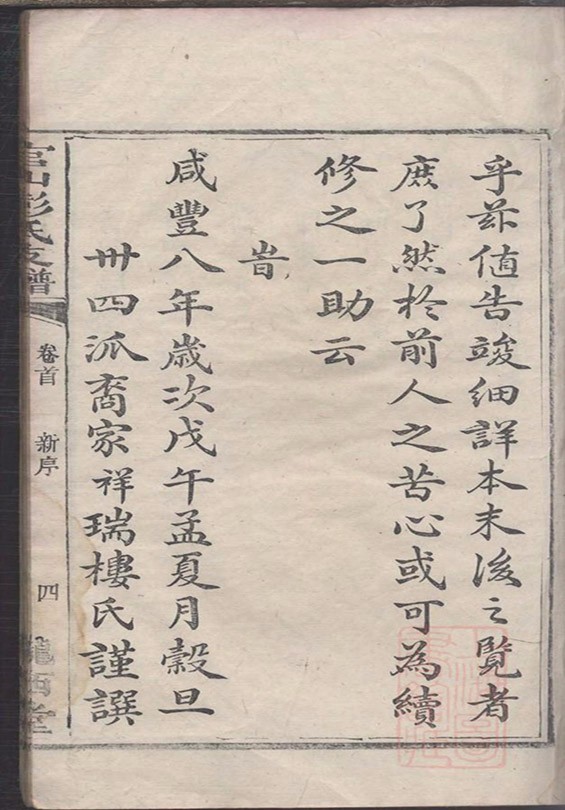 乎茲值告竣細詳本末後之覽者
庶了然於前人之苦心或可為續
修之一助云
旹
咸豐八年歲次戊午孟夏月穀旦
卅四派裔家祥瑞樓氏謹譔
官山彭氏支譜
卷首 新序 四
隴西堂